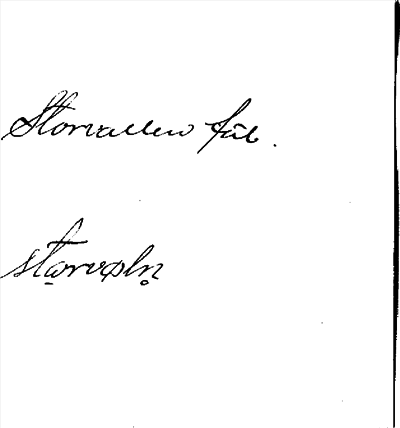 Storvallen fäb.
stωrvαln̥